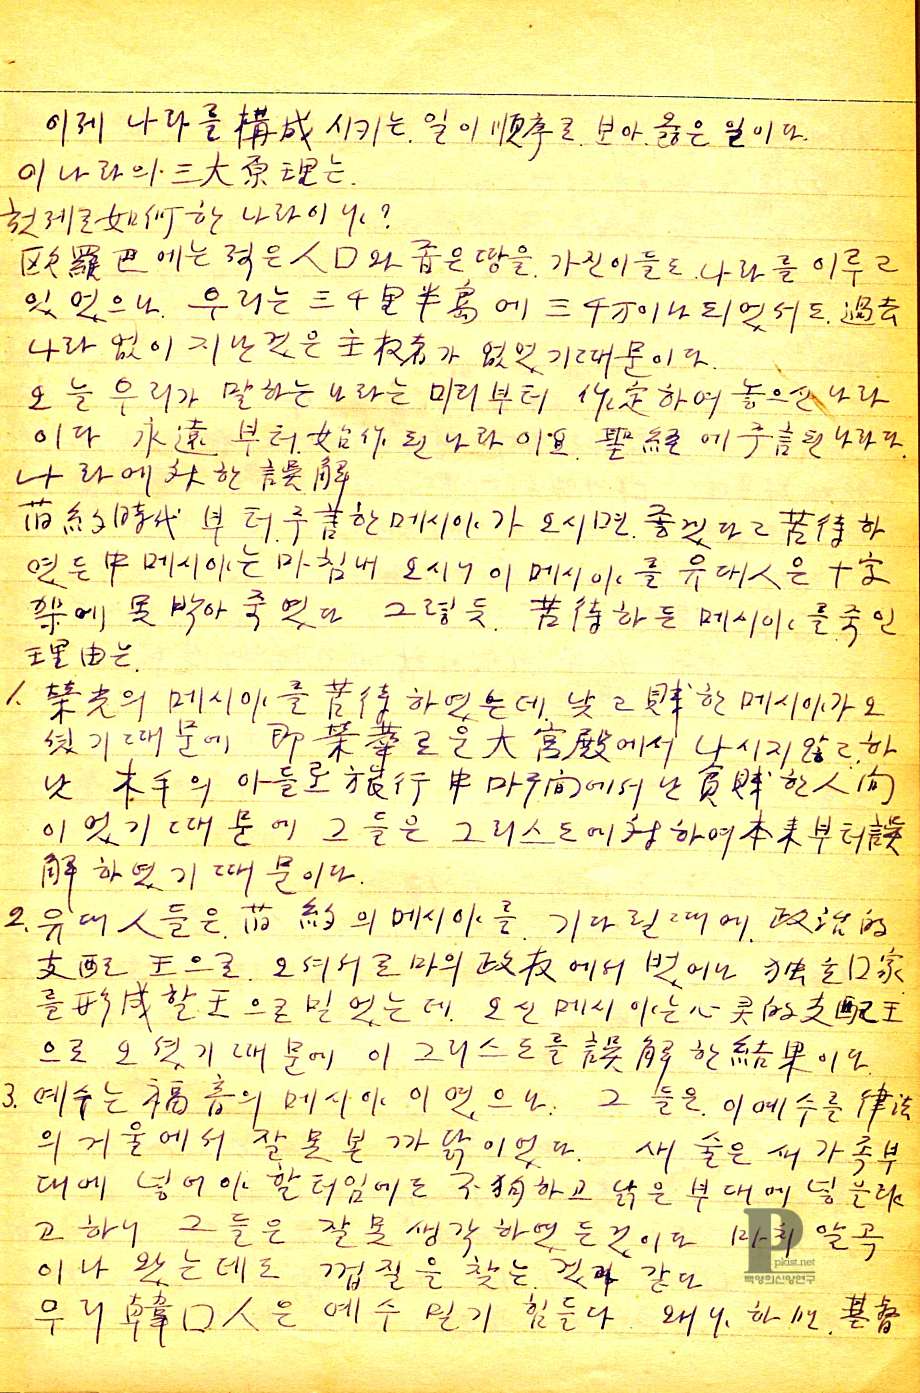 이제 나라를 構成 시키는 일이 順序로 보아 옳은 일이다.
이 나라의 三大 原理는.
첫제로 如何한 나라이냐?
欧羅巴에는 적은 人口와 좁은 땅을 가진이들도 나라를 이루고
있었으나. 우리는 三千里半島에 三千万이나 되였서도. 過去
나라 없이 지난것은 主权者가 없었기때문이다.
오늘 우리가 말하는 나라는 미리부터 作定하여 놓으신 나라
이다 永遠 부터 始作 된 나라이요. 聖経에 予言된 나라다.
나라에 対한 誤解
旧約時代 부터 予言한 메시아가 오시면 좋겠다고 苦待하
였든 中 메시아는 마침내 오시니 이 메시아를 유대人은 十字
架에 못박아 죽였다 그렇듯 苦待하든 메시아를 죽인
理由는.
1. 榮光의 메시아를 苦待하였는데 낮고 賤한 메시아가 오
셨기때문에 即 榮華로운 大宮殿에서 나시지 않고 하
낫 木手의 아들로 旅行中 마구间에서 난 貧賤한 人间
이였기때문에 그들은 그리스도에 対하여 本来부터 誤
解하였기때문이다.
2. 유대人들은 旧約의 메시아를 기다릴때에 政治的
支配王으로 오셔서 로마의 政权에서 벗어나 独立口家
를 形成할 王으로 믿었는데. 오신 메시아는 心灵的 支配王
으로 오셨기때문에 이 그리스도를 誤解한 結果이다.
3. 예수는 福音의 메시아이였으나. 그들은 이 예수를 律法
의 거울에서 잘못본 까닭이었다. 새 술은 새 가죽부
대에 넣어야 할터임에도 不拘하고 낡은 부대에 넣을려
고 하니 그들은 잘못 생각하였든것이다 마치 알곡
이 나 왔는데도 껍질을 찾는 것과 같다
우리 韓口人은 예수 믿기 힘들다. 왜냐 하면. 基督
P
pkist.net
백영희신앙연구